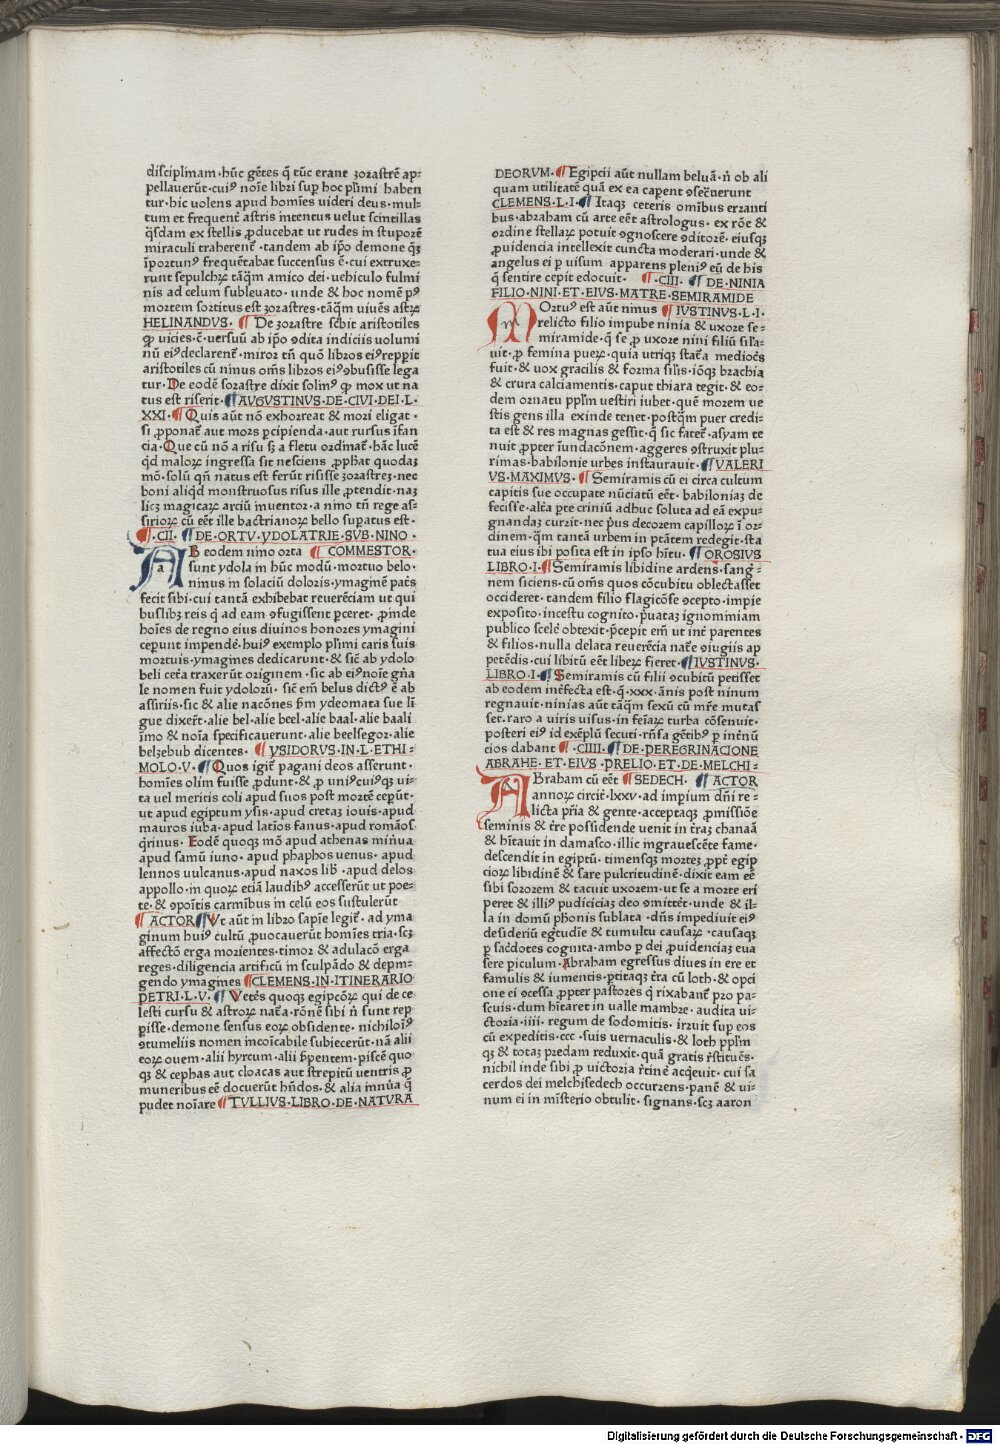 disciplinam·hūc gētes q̄ tūc erant zorastrē ap-
pellauerūt·cuiꝰ noīe libri sup hoc pſimi haben
tur·hic uolens apud homīes uideri deus·mul-
tum et frequent̄ astris intentus uelut scintillas
q̄sdam ex stellis ꝓducebat ut rudes in stuporē
miraculi traherent̄·tandem ab ip̄o demone q̄ꝫ
īportunꝰ frequētabat succensus ē·cui extruxe-
runt sepulchꝝ tāq̄m amico dei·uehiculo fulmi
nis ad celum subleuato·unde & hoc nomē pꝰ
mortem sortitus est zorastres·tāq̄m uiuēs astꝝ
HELINANDVS· ¶ De zorastre sc̄bit aristotiles
ꝙ uicies·c̄·uersuū ab ip̄o ꝯdita indiciis uolumi
nū eiꝰdeclarent̄·miror tn̄ quō libros eiꝰreppit
aristotiles cū ninus om̄s libros eiꝰꝯbusisse lega
tur·De eodē zorastre dixit solinꝰ ꝙ mox ut na
tus est riserit·¶AVGVSTINVS·DE·CIVI·DEI·L·
XXI·¶ Quis aūt nō exhorreat & mori eligat·
si ꝓponat̄ aut mors ꝑcipienda·aut rursus īfan
cia·Que cū nō a risu sꝫ a fletu ordinat̄·hāc lucē
q̄d maloꝝ ingressa sit nesciens ꝓphat quodaꝫ
mō·solū qn̄ natus est ferūt risisse zorastreꝫ·nec
boni aliq̄d monstruosus risus ille ꝓtendit·naꝫ
liꝫ magicaꝝ arciū inuentor·a nino tn̄ rege as-
siriorꝝ cū eēt ille bactrianoꝝ bello supatus est·
¶·CII· ¶DE·ORTV·YDOLATRIE·SVB·NINO·
AB eodem nino orta ¶ COMMESTOR·
sunt ydola in hūc modū·mortuo belo·
ninus in solaciū doloris·ymaginē patꝭ
fecit sibi·cui tantā exhibebat reuerēciam ut qui
buslibꝫ reis q̄ ad eam ꝯfugissent pceret·ꝓinde
hoīes de regno eius diuinos honores ymagini
ceꝑunt impendē·huiꝰ exemplo pſimi caris suis
mortuis·ymagines dedicarunt·& sic̄ ab ydolo
beli cet̄a traxerūt originem·sic ab eiꝰnoīe gn̄a
le nomen fuit ydolorū·sic̄ em̄ belus dictꝰ ē ab
assiriis·sic & alie nacōnes ẜm ydeomata sue li
gue dixer̄t·alie bel·alie beel·alie baal·alie baali
īmo & noīa specificauerunt·alie beelfegor·alie
belzebub dicentes·¶ YSIDORVS·IN·L·ETHI-
MOLO·V·¶Quos igit̄ pagani deos asserunt·
homīes olim fuisse ꝓdunt·& ꝓ uniꝰcuiꝰqꝫ ui-
ta uel meritis coli apud suos post mortē ceꝑūt·
ut apud egiptum ysis·apud cretaꝫ iouis·apud
mauros iuba·apud latīos fanus·apud romāos
q̄rinus·Eodē quoqꝫ mō apud athenas min̄ua
apud samū iuno·apud phaphos uenus·apud
lennos uulcanus·apud naxos lib̄·apud delos
appollo·in quoꝝ etiā laudibꝰ accesserūt ut poe-
te·& ꝯpoītis carmībus in celū eos sustulerūt
¶ ACTOR¶Vt aūt in libro sapīe legit̄·ad yma
ginum huiꝰ cultū ꝓuocauerūt homīes tria·scꝫ
affectō erga morientes·timor & adulacō erga
reges·diligencia artificū in sculpādo & depin-
gendo ymagines ¶CLEMENS·IN·ITINERARIO
PETRI·L·V·¶ Vetēs quoqꝫ egipcōꝝ qui de ce
lesti cursu & astroꝝ nat̄a·rōnē sibi n̄ sunt rep
ꝑisse·demone sensus eoꝝ obsidente·nichiloīꝰ
ꝯtumeliis nomen incoīcabile subiecerūt·nā alii
eoꝝ ouem·alii hyrcum·alii ẜpentem·piscē quo
qꝫ & cephas aut cloacas aut strepitū uentris ꝓ
muneribus eē docuerūt hn̄dos·& alia inn̄ua q̄
pudet noīare ¶TVLLIVS·LIBRO·DE·NATVRA
DEORVM·¶Egipcii aūt nullam beluā·n̄ ob ali
quam utilitatē quā ex ea capent ꝯsec̄uerunt
CLEMENS·L·I·¶ Itaqꝫ ceteris omībus erranti
bus·abraham cū arte eēt astrologus·ex rōe &
ordine stellaꝝ potuit ꝯgnoscere ꝯditorē·eiusqꝫ
ꝓuidencia intellexit cuncta moderari·unde &
angelus ei ꝑ uisum apparens pleniꝰ eū de his
q̄ sentire cepit edocuit· ¶·CIII· ¶DE·NINIA
FILIO·NINI·ET·EIVS·MATRE·SEMIRAMIDE
MOrtuꝰ est aūt ninus ¶IVSTINVS·L·I·
relicto filio impube ninia & uxore se-
miramide·q̄ se ꝓ uxore nini filiū sila-
uit·ꝓ femina pueꝝ·quia utriqꝫ stat̄a mediocꝭ
fuit·& uox gracilis & forma silis·iōqꝫ brachia
& crura calciamentis·caput thiara tegit·& eo-
dem ornatu ppl̄m uestiri iubet·quē morem ue
stis gens illa exinde tenet·postq̄m puer credi-
ta est & res magnas gessit·q̄ sic fatet̄·asyam te
nuit ꝓpter īundacōnem·aggeres ꝯstruxit plu-
rimas·babilonie urbes instaurauit·¶VALERI
VS·MAXIMVS·¶Semiramis cū ei circa cultum
capitis sue occupate nūciatū eēt·babiloniaꝫ de
fecisse·alt̄a ꝑte criniū adhuc soluta ad eā expu-
gnandaꝫ currit·nec pꝰus decorem capilloꝝ ī or-
dinem·q̄m tantā urbem in ptātem redegit·sta
tua eius ibi posita est in ipso hītu·¶OROSIVS
LIBRO·I·¶Semiramis libidine ardens·sang̣-
nem siciens·cū om̄s quos cōcubitu oblectasset
occideret·tandem filio flagicōse ꝯcepto·impie
exposito·incestu cognito·ṗuataꝫ ignominiam
publico scelē obtexit·ꝓcepit em̄ ut int̄ parentes
& filios·nulla delata reuerēcia nat̄e ꝯiugiis ap
petēdis·cui libitū eēt libeꝝ fieret·¶IVSTINVS·
LIBRO·I·¶Semiramis cū filii ꝯcubitū petisset
ab eodem int̄fecta est·q̄·xxx·ānis post ninum
regnauit·ninias aūt tāq̄m sexū cū mr̄e mutas
set·raro a uiris uisus·in feīaꝝ turba cōsenuit·
posteri eiꝰ id exēplū secuti·rn̄sa gētibꝰ ꝑ int̄nū
cios dabant ¶·CIIII·¶DE·PEREGRINACIONE
ABRAHE·ET·EIVS·PRELIO·ET·DE·MELCHI-
ABraham cū eēt ¶SEDECH·¶ACTOR
annoꝝ circit̄·lxxv·ad imꝑium dn̄i re-
licta pn̄a & gente·acceptaqꝫ ꝓmissiōe
seminis & tr̄e possidende uenit in tr̄aꝫ chanaā
& hītauit in damasco·illic ingrauescēte fame·
descendit in egiptū·timensqꝫ morteꝫ ꝓpt̄ egip
cioꝝ libidinē & sare pulcritudinē·dixit eam eē
sibi sororem & tacuit uxorem·ut se a morte eri
peret & illiꝰ pudiciciaꝫ deo ꝯmitteꝶ·unde & il-
la in domū phonis sublata·dn̄s impediuit eiꝰ
desideriū eg̣tudīe & tumultu causaꝝ·causaqꝫ
ꝑ sacdotes cognita·ambo ꝑ dei ꝓuidenciaꝫ eua
sere ꝑiculum·Abraham egressus diues in ere et
famulis & iumentis·ꝑtitaqꝫ tr̄a cū loth·& opci
one ei ꝯcessa ꝓpter pastores q̄ rixabant̄ pro pa-
scuis·dum hītaret in ualle mambre·audita ui-
ctoria·iiii·regum de sodomitis·irruit sup eos
cū expeditis·ccc·suis uernaculis·& loth ppl̄m
qꝫ & totaꝫ predam reduxit·quā gratis r̄stituēs·
nichil inde sibi ꝓ uictoria r̄tinē acq̄euit·cui sa
cerdos dei melchisedech occurrens·panē & ui-
num ei in misterio obtulit·signans·scꝫ aaron
Digitalisierung gefördert durch die Deutsche Forschungsgemeinschaft · DFG